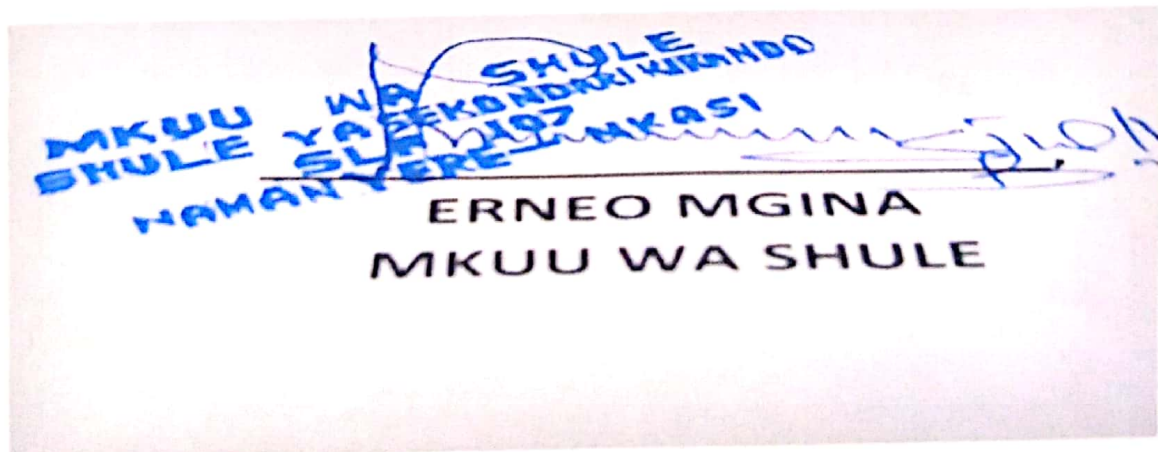 MKUU WA SHULE
SHULE YA SEKONDARI KIRANDO
SLP 197
NAMANYERE - NKASI
ERNEO MGINA
MKUU WA SHULE